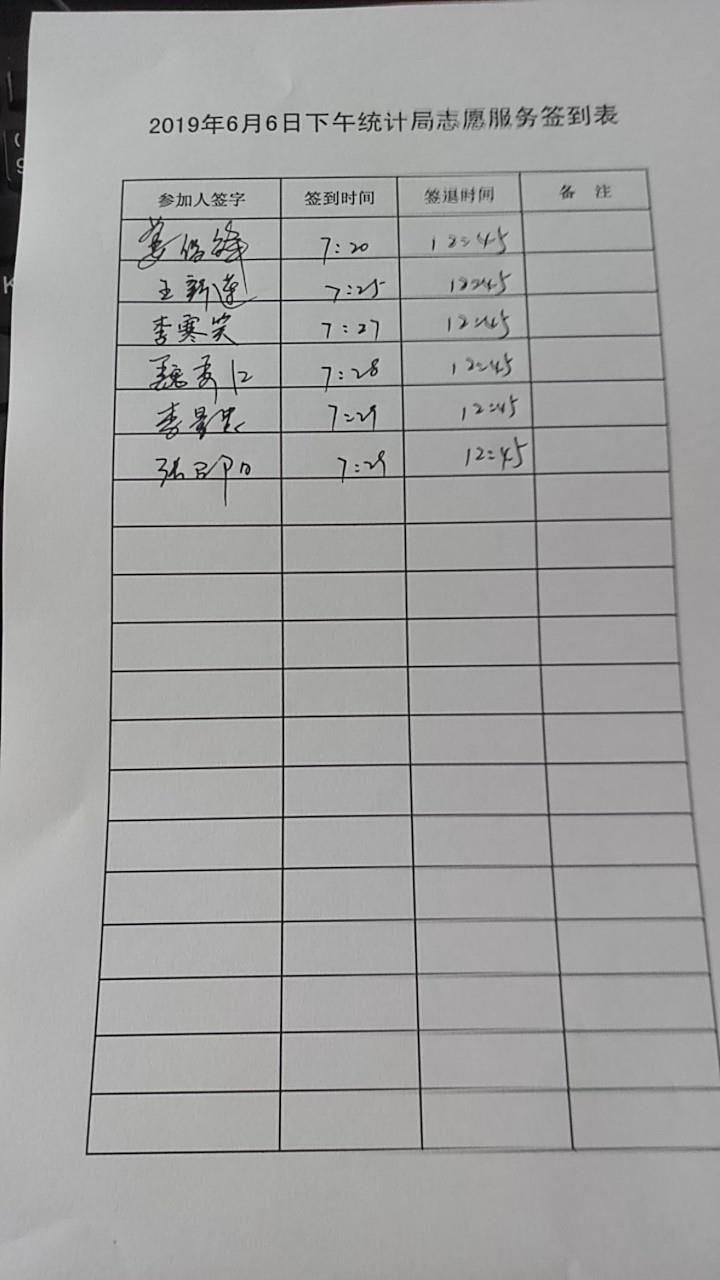 2019年6月6日下午统计局志愿服务签到表
参加人签字 签到时间 签退时间 备 注
姜俊锋 7:20 12:45
王新莲 7:25 12:45
李寒笑 7:27 12:45
魏 7:28 12:45
李景 7:29 12:45
张 7:29 12:45